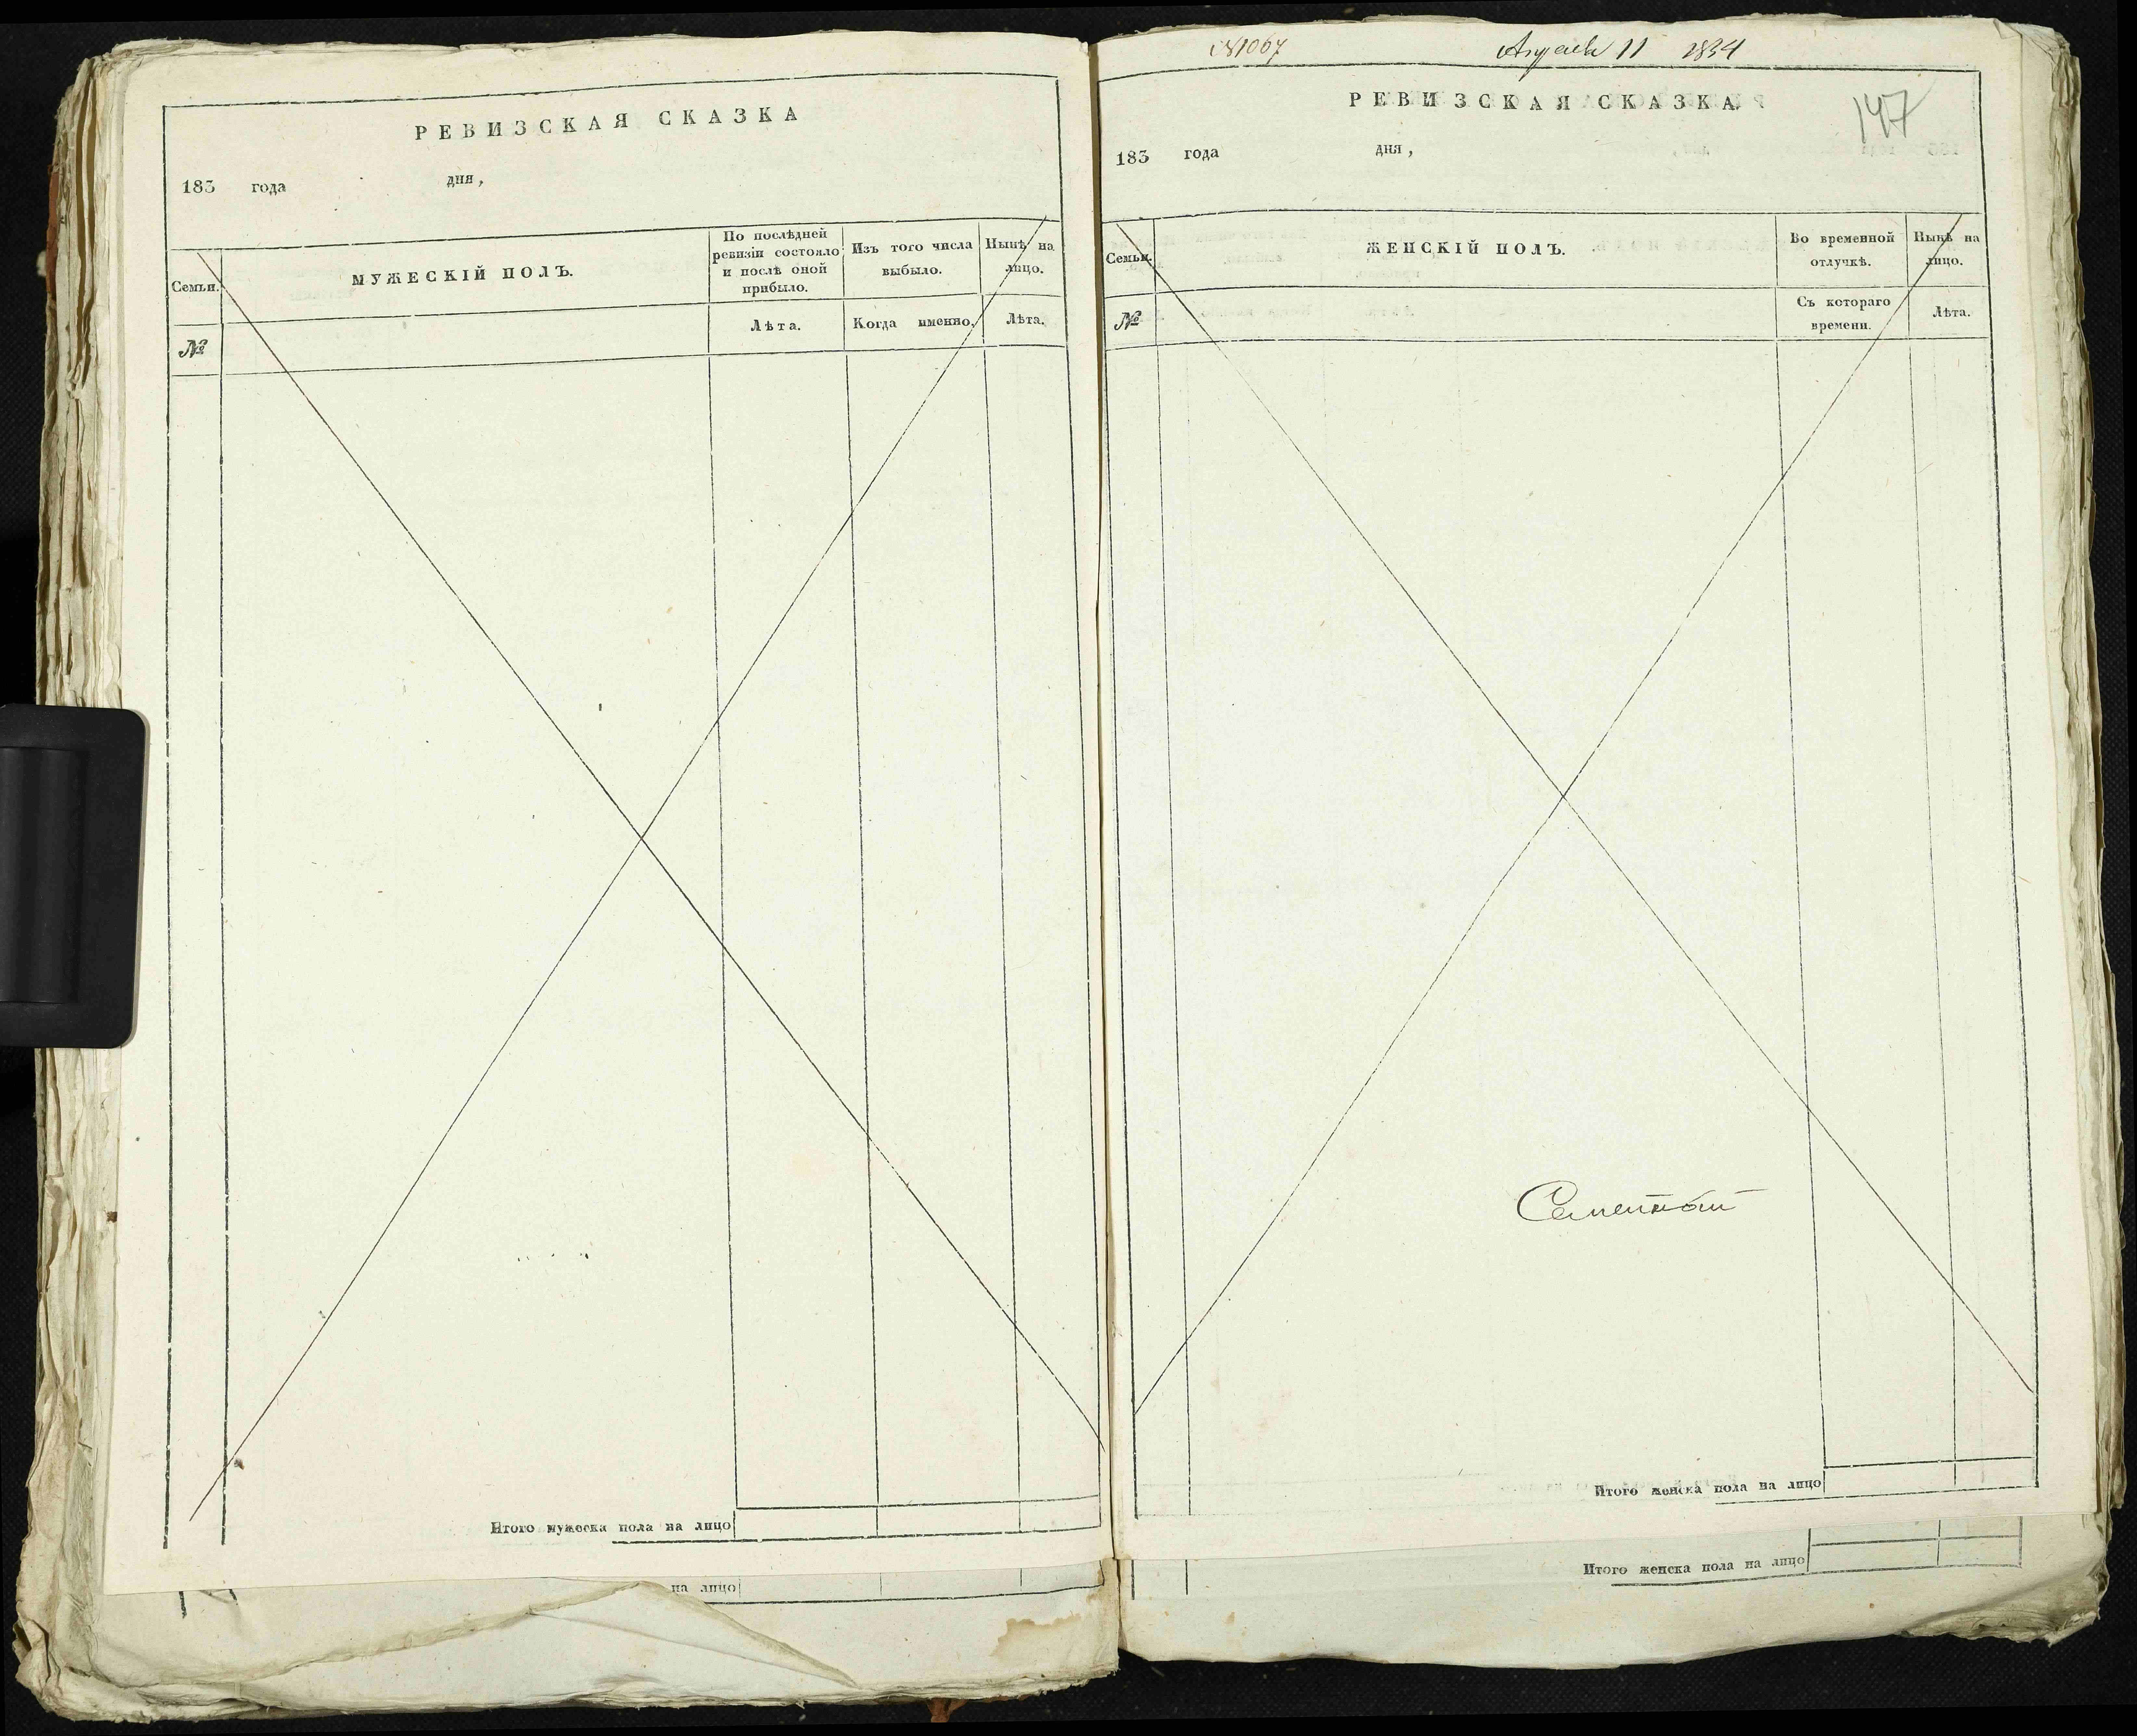 РЕВИЗСКАЯ СКАЗКА
183 года дня,
Семьи.
МУЖЕСКІЙ ПОЛЪ.
По послѣдней ревизіи состояло и послѣ оной прибыло.
Изъ того числа выбыло.
Нынѣ на лицо.
№
Лѣта.
Когда именно.
Лѣта.
Итого мужеска пола на лицо
на лицо
№1067 11 1834
РЕВИЗСКАЯ СКАЗКА
147
183 года дня,
Семьи.
ЖЕНСКІЙ ПОЛЪ.
Во временной отлучкѣ.
Нынѣ на лицо.
№
Съ котораго времени.
Лѣта.
Итого женска пола на лицо
Итого женска пола на лицо